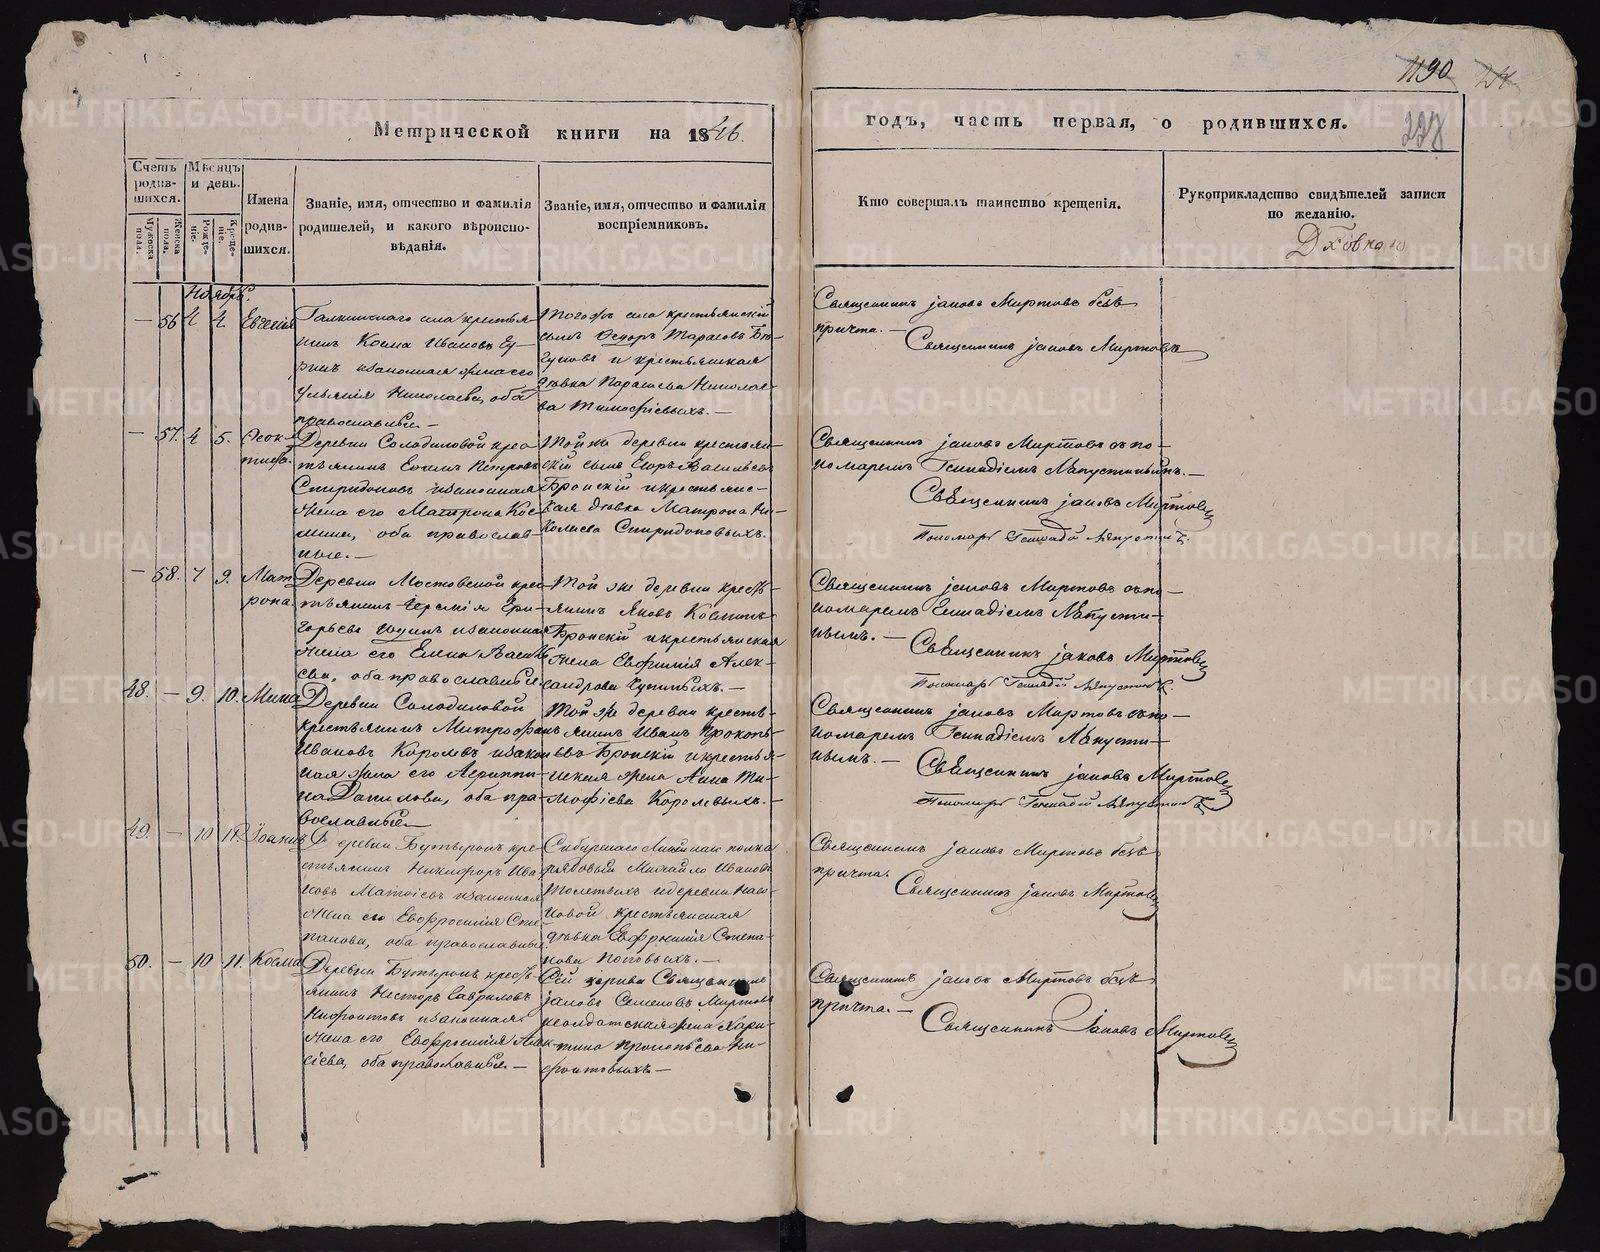 1190
228
Метрической книги на 1846.
годъ, часть первая, о родившихся.
Счетъ родив-шихся.
Мужеска пола.
Женска пола.
Мѣсяцъ и день.
Рожде-ніе.
Креще-ніе.
Имена родив-шихся.
Званіе, имя, отчество и фамилія
родишелей, и какого вѣроиспо-
вѣданія.
Званіе, имя, отчество и фамилія
воспріемниковъ.
Кто совершалъ таинство крещенія.
Рукоприкладство свидѣтелей записи
по желанію.
Ноябрь.
— 56 4 4. Евгенія
села крестья-
нинъ Косма Ивановъ
законная жена его
Николаева, оба
православные.—
Того жъ села крестьянскій
сынъ Ѳедоръ Тарасовъ
и крестьянская
дѣвка Парасковья Николае-
ва Тимофіевыхъ.—
Священникъ Іаковъ Миртовъ безъ
причта.—
Священникъ Іаковъ Миртовъ
— 57. 4 5. Ѳеок-
тиста.
Деревни Солодиловой крес-
тьянинъ Евѳимъ Петровъ
Спиридоновъ и законная
жена его Матрона Кос-
мина, оба православ-
ные.—
Той же деревни крестьян-
скій сынъ Егоръ Васильевъ
Бронскій и крестьянс-
кая дѣвка Матрона Ни-
колаева Спиридоновыхъ.
Священникъ Іаковъ Миртовъ съ по-
номаремъ Геннадіемъ Лапустинымъ.—
Священникъ Іаковъ Миртовъ
Пономарь Геннадій Лапустинъ.
— 58. 7 9. Мат-
рона.
Деревни Мостовской крес-
тьянинъ Іеремія Гри-
горьевъ и законная
жена его Елена Василь-
ева, оба православные
Той же деревни кресть-
янинъ Яковъ
Бронскій и крестьянская
жена Евфимія Алек-
сандрова
Священникъ Іаковъ Миртовъ съ по-
номаремъ Геннадіемъ Лапусти-
нымъ.—
Священникъ Іаковъ Миртовъ
Пономарь Геннадій Лапустинъ.
48. — 9. 10. Мина
Деревни Солодиловой
крестьянинъ Митрофанъ
Ивановъ Королевъ и закон-
ная жена его Агриппи-
на Данилова, оба пра-
вославные—
Той же деревни кресть-
янинъ Иванъ Прокопь-
евъ Бронскій и крестья-
нская жена Анна Ти-
мофіева Королевыхъ.—
Священникъ Іаковъ Миртовъ съ по-
номаремъ Геннадіемъ Лапусти-
нымъ.—
Священникъ Іаковъ Миртовъ
Пономарь Геннадій Лапустинъ
49. — 10 Іоаннъ
Деревни Бутырокъ кре-
стьянинъ Никифоръ Ива-
новъ Матвіевъ и законная
жена его Евфросинія Сте-
панова, оба православные
полка
рядовый Михайло Ивановъ
и деревни
крестьянская
дѣвка Евфросинія Степа-
нова Поповыхъ.—
Священникъ Іаковъ Миртовъ безъ
причта.
Священникъ Іаковъ Миртовъ
50. — 10 11. Косма
Деревни Бутырокъ кресть-
янинъ Несторъ Гавриловъ
Нифонтовъ и законная
жена его Евфросинія Алек-
сіева, оба православные—
Сей церкви Священникъ
Іаковъ Семеновъ Миртовъ
и солдатская жена Хари-
тина Прокопьева Ни-
фонтовыхъ—
Священникъ Іаковъ Миртовъ безъ
причта.—
Священникъ Іаковъ Миртовъ
METRIKI.GASO-URAL.RU